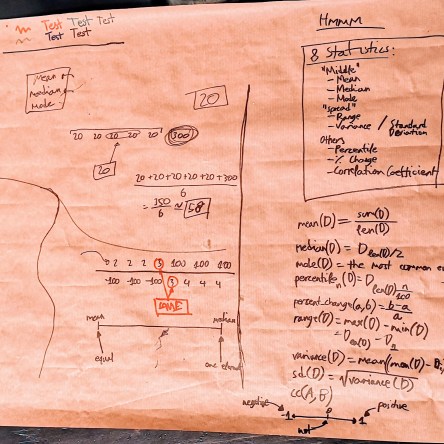 Test Test Test
Test Test
Mean
median
mode
20
20 20 20 20 20 300
20
20+20+20+20+20+300
6
= 350/6 ≈ 58
0 2 2 2 3 100 100 100
-100 -100 -100 3 4 4 4
SAME
mean
median
equal
HMMM
8 Statistics:
"Middle"
- Mean
- Median
- Mode
"Spread"
- Range
- Variance / Standard Deviation
Others
- Percentile
- % Change
- Correlation Coefficient
mean(D) = sum(D)/len(D)
median(D) = D len(D)/2
mode(D) = the most common
percentile n (D) = D len(D) n/100
percent_change(a,b) = b-a/a
range(D) = max(D) - min(D)
variance(D) = mean((mean(D) - D
sd(D) = √variance(D)
cc(A,B)
negative
positive
-1 0 1
not